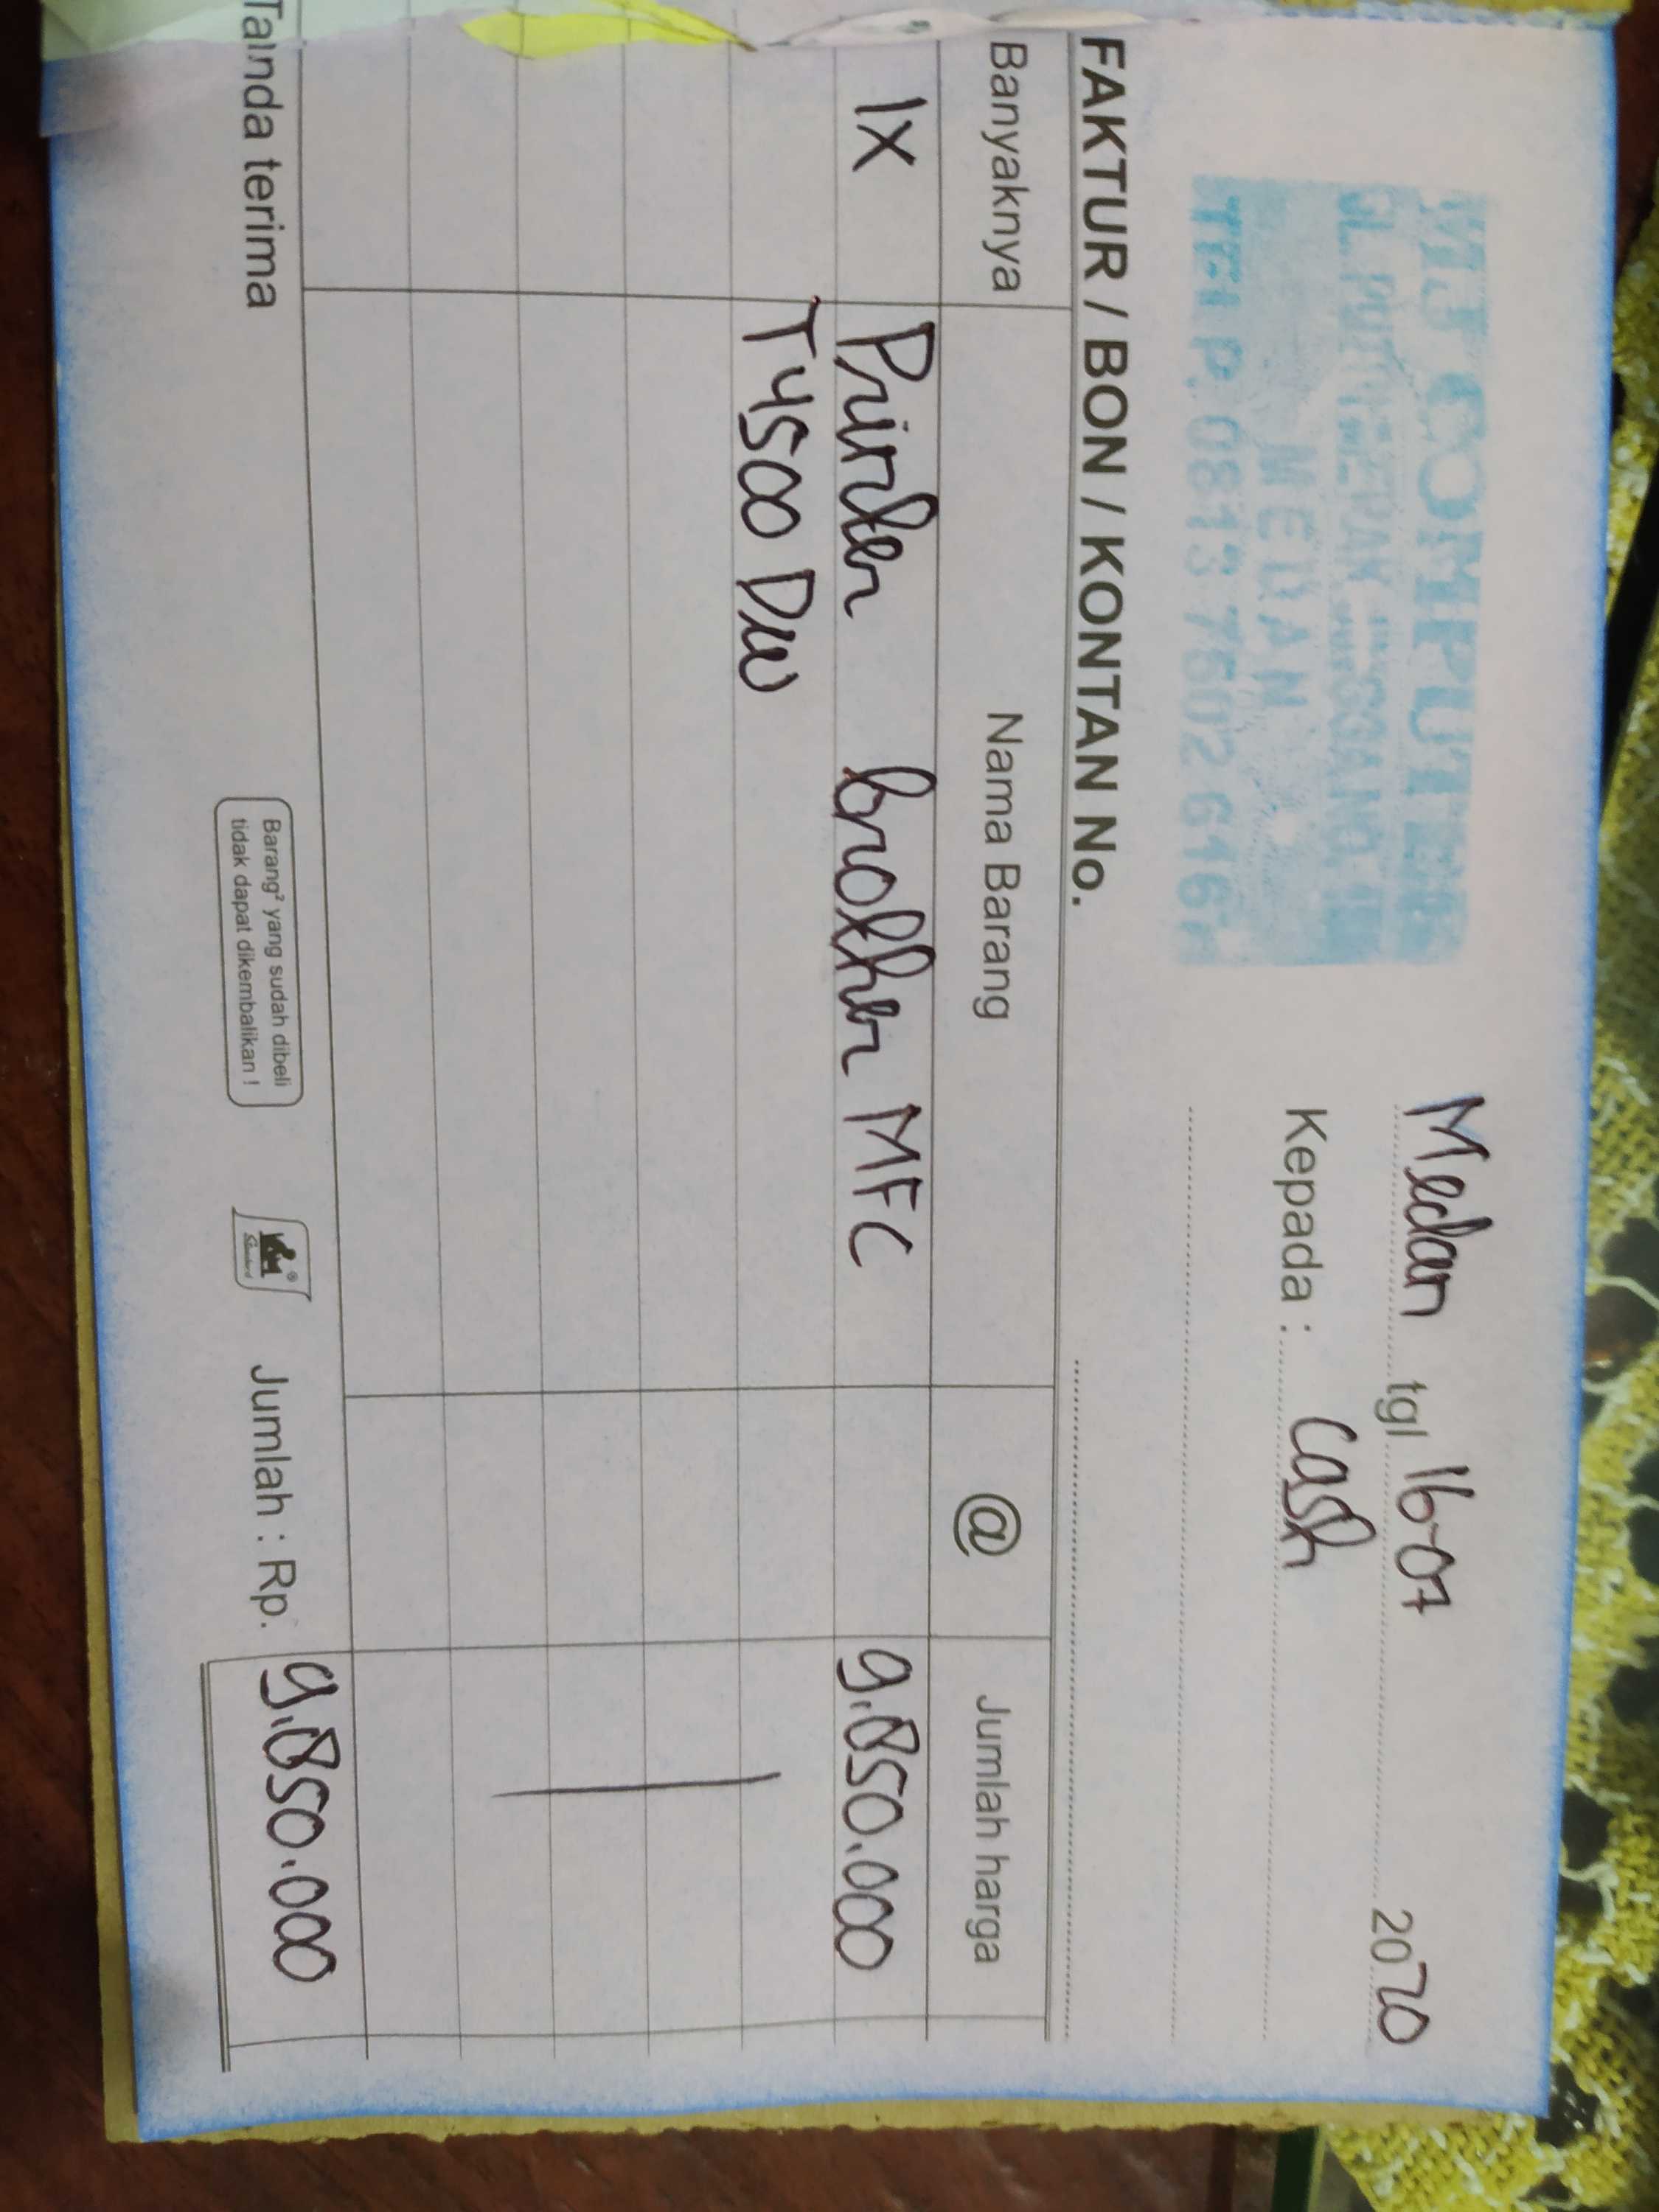 COMPUTER
MEDAN
TELP. 0813 7602 616
Medan tgl 16-07 2020
Kepada : Cash
FAKTUR / BON / KONTAN No.
Banyaknya Nama Barang @ Jumlah harga
1X Printer brother MFC 9.850.000
T4500 DW
Tanda terima
Barang² yang sudah dibeli
tidak dapat dikembalikan !
Jumlah : Rp. 9.850.000